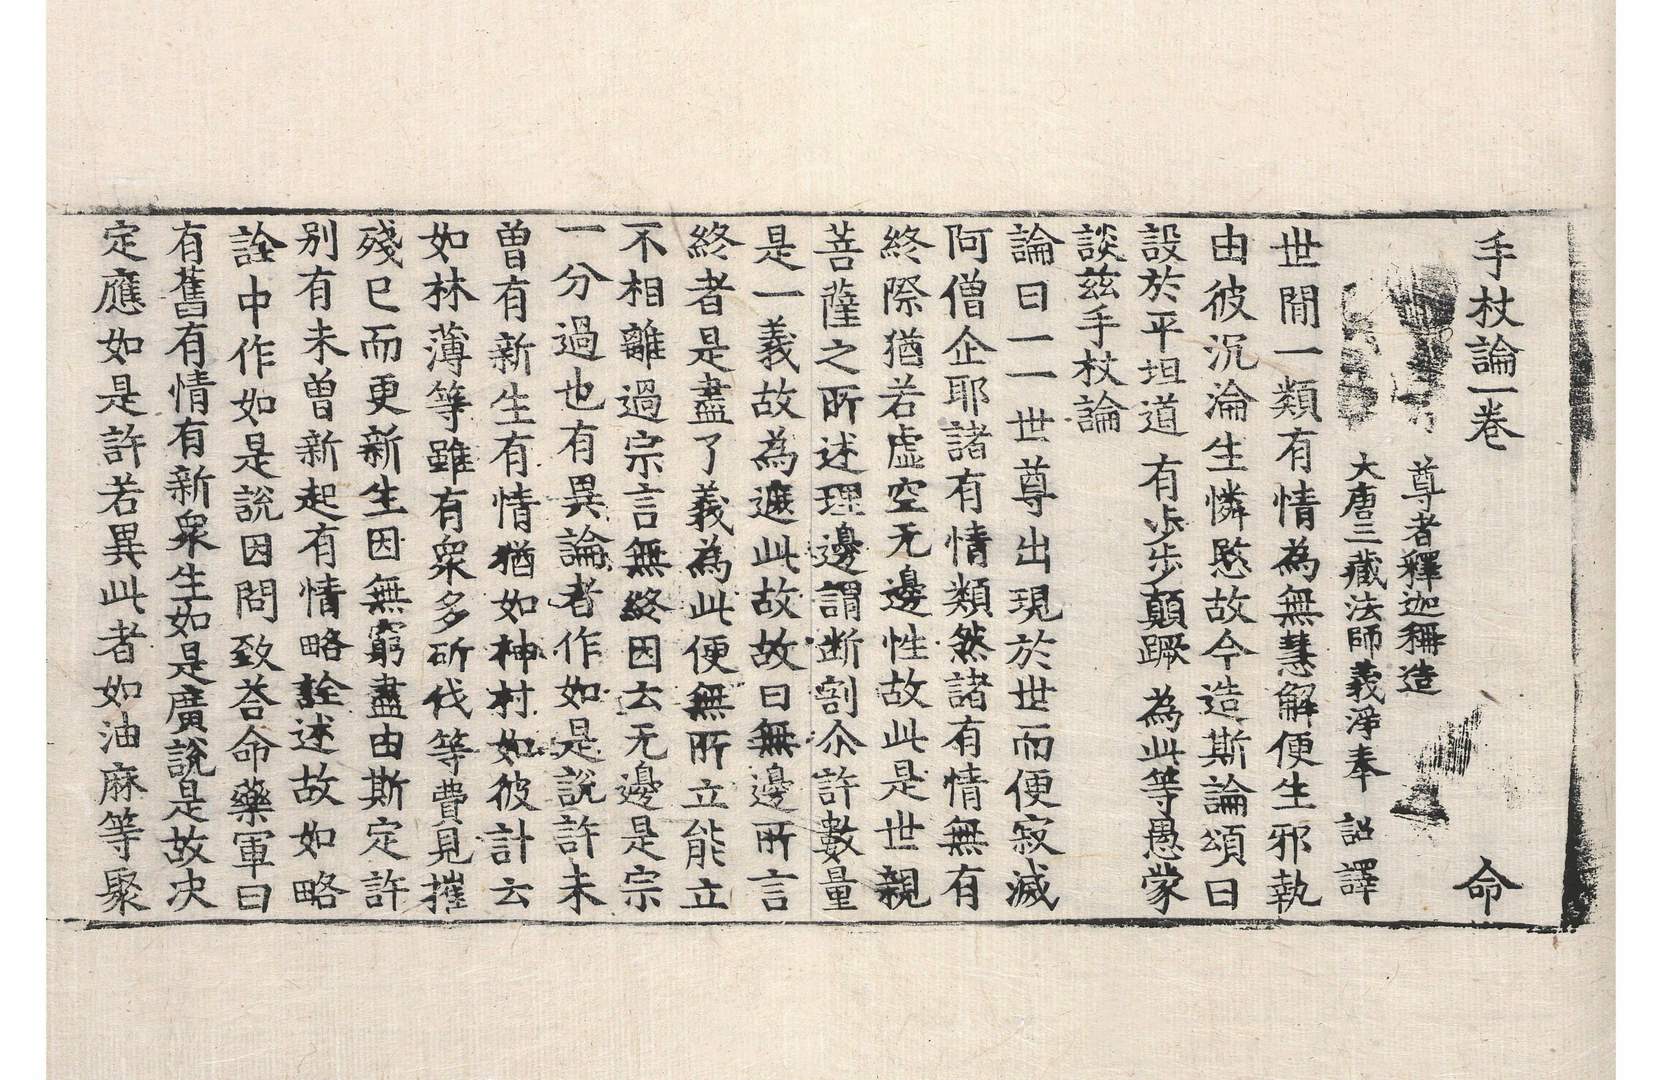 手杖論一卷 命
尊者釋迦稱造
大唐三藏法師義淨奉 詔譯
世間一類有情為無慧解便生邪執
由彼沉淪生憐愍故今造斯論頌曰
設於平坦道 有步步顛蹶 為此等愚蒙
談茲手杖論
論曰一一世尊出現於世而便寂滅
阿僧企耶諸有情類然諸有情無有
終際猶若虛空无邊性故此是世親
菩薩之所述理邊謂断割尒許數量
是一義故為遮此故故曰無邊所言
終者是盡了義為此便無所立能立
不相離過宗言無終因云无邊是宗
一分過也有異論者作如是說許未
曾有新生有情猶如神村如彼計云
如林薄等雖有衆多斫伐等費見摧
殘已而更新生因無窮盡由斯定許
別有未曾新起有情略詮述故如略
詮中作如是說因問致荅命藥軍曰
有舊有情有新衆生如是廣說是故決
定應如是許若異此者如油麻等聚